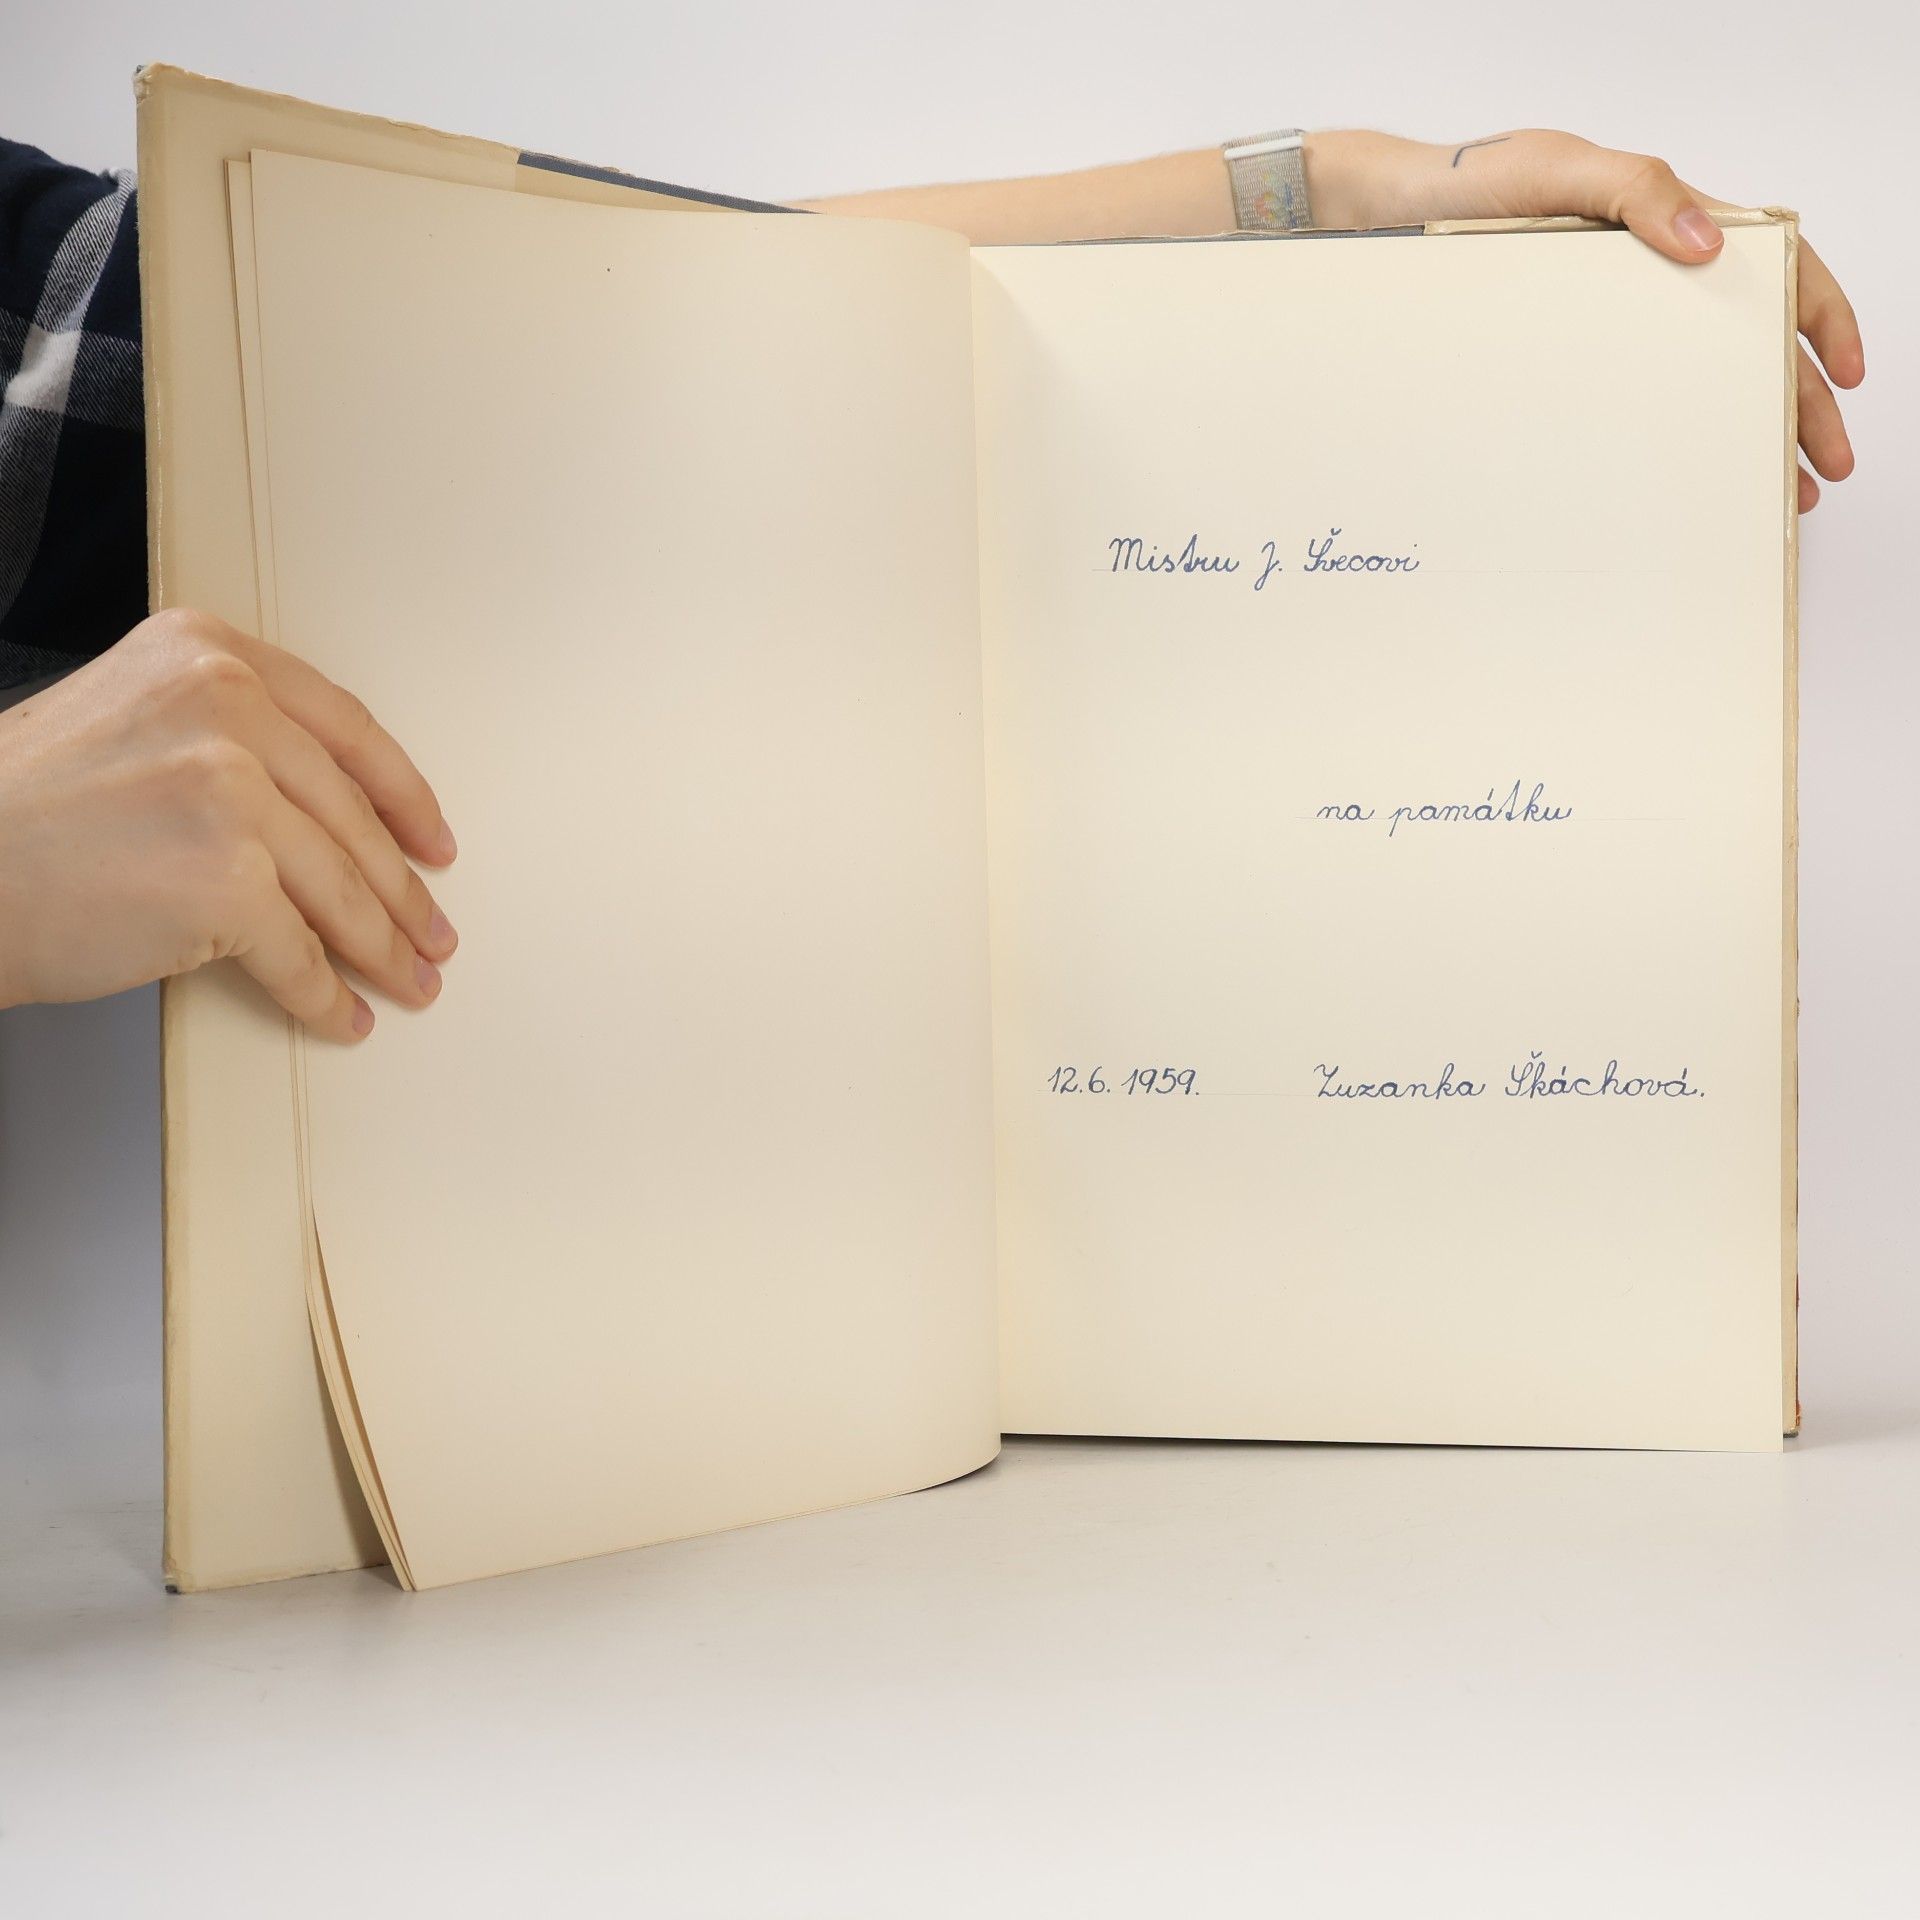 Mistru J. Švecovi
na památku
12.6. 1959. Zuzanka Škáchová.